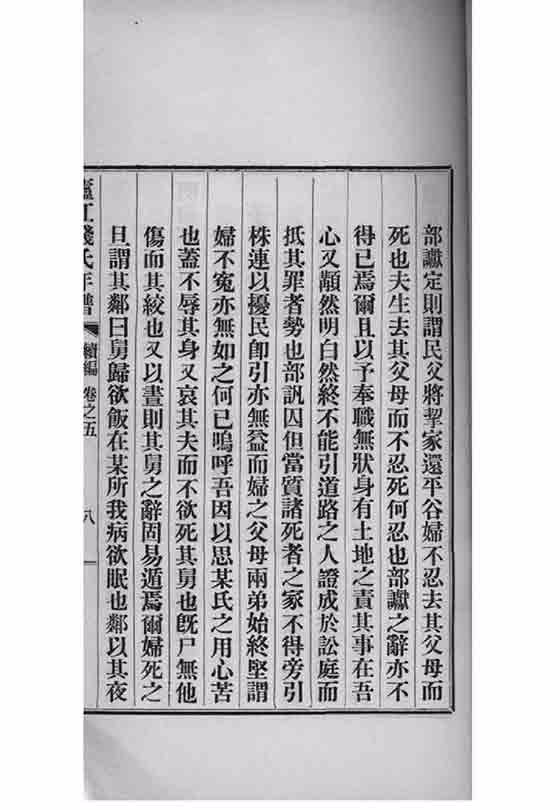 部讞定則謂民父將挈家還平谷婦不忍去其父母而
死也夫生去其父母而不忍死何忍也部讞之辭亦不
得已焉爾且以予奉職無狀身有土地之責其事在吾
心又顯然明白然終不能引道路之人證成於訟庭而
抵其罪者勢也部訊囚但當質諸死者之家不得旁引
株連以擾民卽引亦無益而婦之父母兩弟始終堅謂
婦不寃亦無如之何已嗚呼吾因以思某氏之用心苦
也蓋不辱其身又哀其夫而不欲死其舅也旣尸無他
傷而其絞也又以晝則其舅之辭固易遁焉爾婦死之
旦謂其鄰曰舅歸欲飯在某所我病欲眠也鄰以其夜
廬江錢氏年譜 續編 卷之五 八